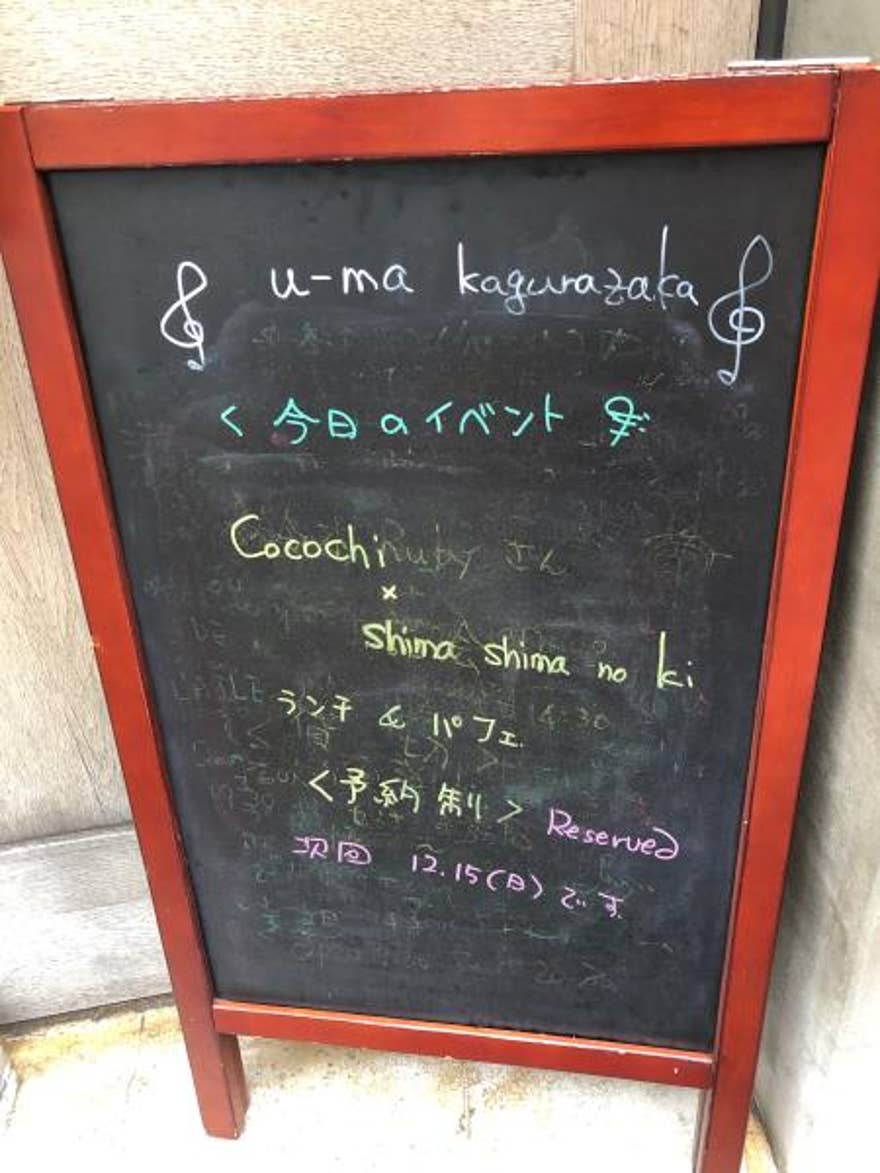 u-ma kagurazaka
< 今日のイベント
Cocochi
×
shima shima no ki
ランチ & パフェ
<予約制> Reserved
次回 12.15(日)です